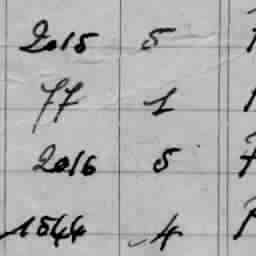 2015 5
77 1
2016 5
1544 4